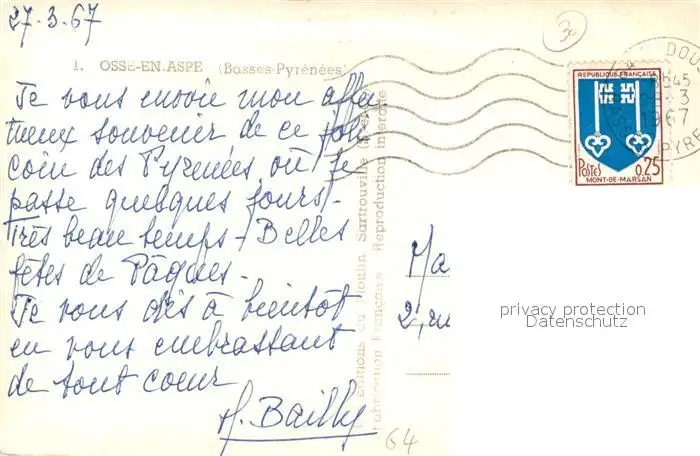 27-3-67
30
1. OSSE-EN-ASPE (Basses-Pyrénées)
Je vous envoie mon affec
tueux souvenir de ce joli
coin des Pyrénées où je
passe quelques jours-
Très beau temps - Belles
fêtes de Pâques-
Je vous dis à bientôt
en vous embrassant
de tout coeur
M. Bailly
64
du Moulin Sartrouville
Fabrication Française Reproduction interdite
REPUBLIQUE FRANÇAISE
POSTES 0,25
MONT-DE-MARSAN
45
3
1967
Ma
2, ru
privacy protection
Datenschutz